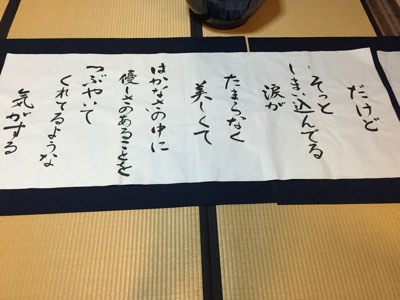 だけど
そっと
しきい込んでる
涙が
たまらなく
美しくて
はかなさの中に
優しさのあることを
つぶやいて
くれてるような
気がする